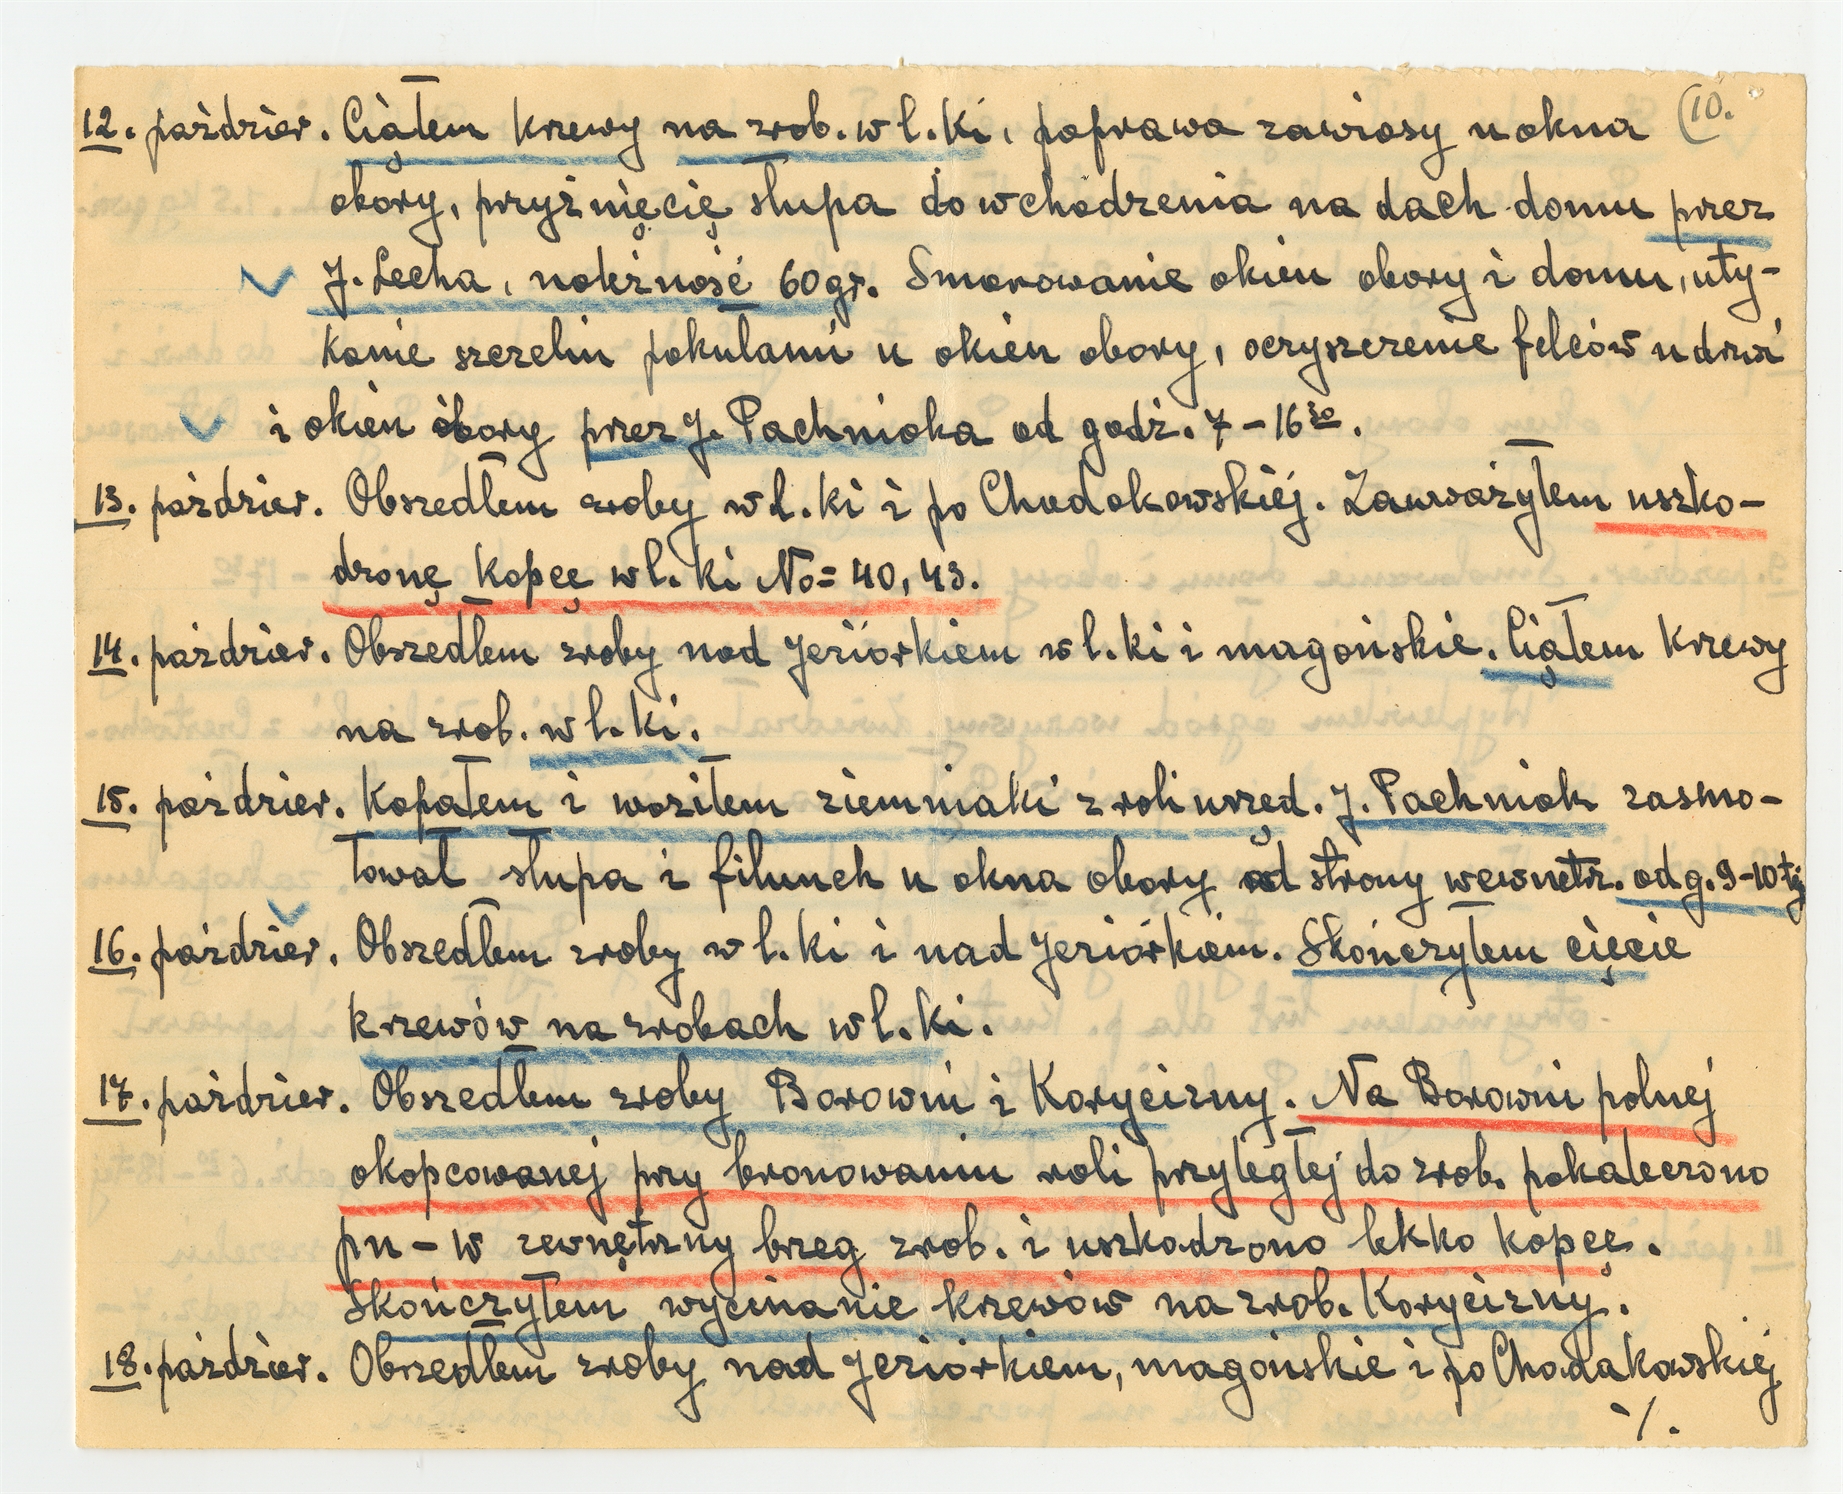 12. paździer. Ciąłem krzewy na zrob. w l. ki, poprawa zawiasy u okna (10.
obory, przyżnięcię słupa do wchodzenia na dach domu przez
J. Lecha, należność 60 gr. Smarowanie okien obory i domu, uty-
kanie szczelin pokułami u okien obory, oczyszczenie felców u drzwi
i okien obory przez J. Pachniaka od godz. 7-16³⁰.
13. paździer. Obszedłem zroby w l. ki i po Chodakowskiéj. Zauważyłem uszko-
dzonę kopcę w l. ki No= 40, 43.
14. paździer. Obszedłem zroby nad Jeziórkiem w l. ki i magońskie. Ciąłem krzewy
na zrob. w l. ki.
15. paździer. Kopałem i woziłem ziemniaki z roli urzęd. J. Pachniak zasmo-
łował słupa i filunek u okna obory od strony wewnętr. od g. 9-10 tej
16. paździer. Obszedłem zroby w l. ki i nad Jeziórkiem. Skończyłem cięcie
krzewów na zrobach w l. ki.
17. paździer. Obszedłem zroby Borowni i Korycizny. Na Borowni polnej
okopcowanej przy bronowaniu roli przyległej do zrob. pokaleczono
pn-w zewnętrzny brzeg zrob. i uszkodzono lekko kopcę.
Skończyłem wycinanie krzewów na zrob. Korycizny.
18. paździer. Obszedłem zroby nad Jeziórkiem, magońskie i po Chodakowskiéj
·/.